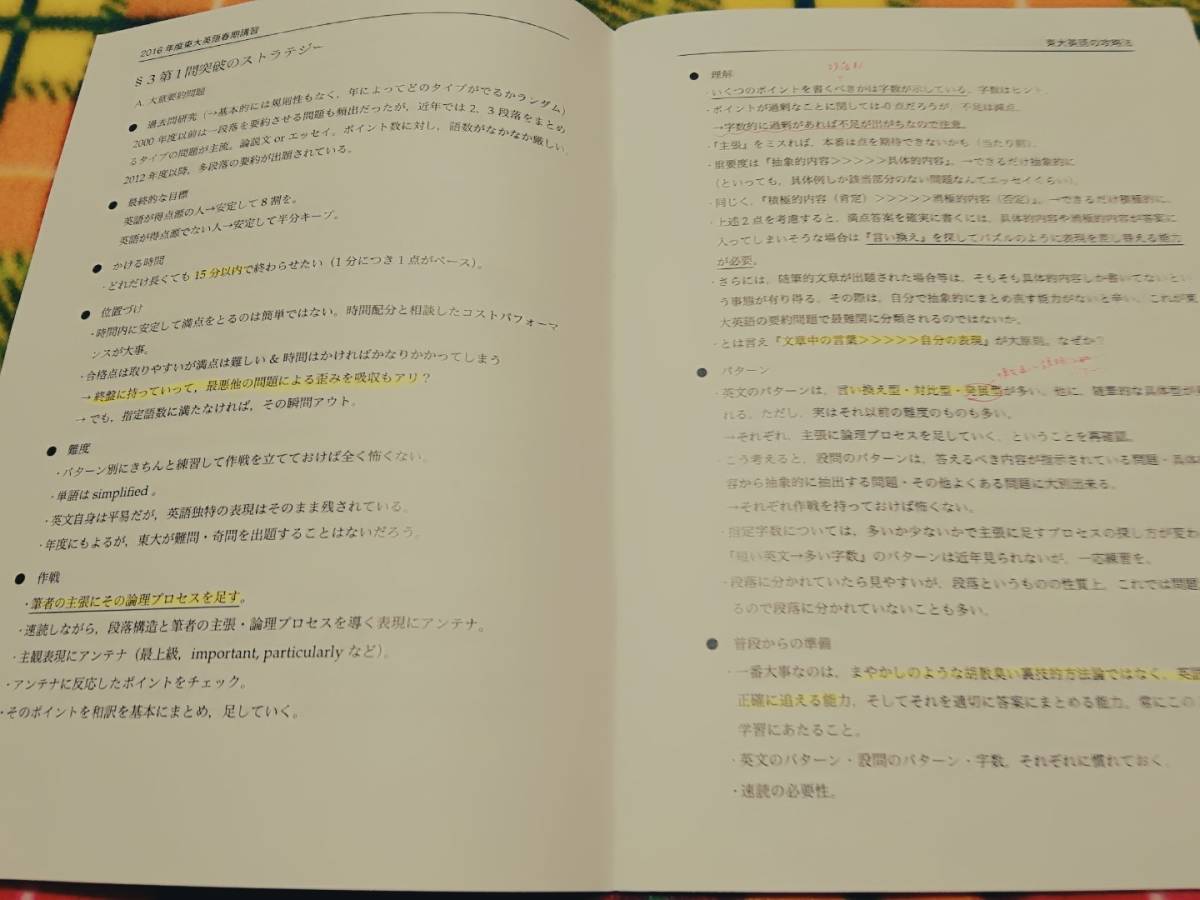 2016年度東大英語春期講習
§3 第1問突破のストラテジー
A. 大意要約問題
● 過去問研究（→基本的には規則性もなく，年によってどのタイプがでるかランダム）
2000年度以前は一段落を要約させる問題も頻出だったが，近年では2，3段落をまとめ
るタイプの問題が主流。論説文 or エッセイ。ポイント数に対し，語数がなかなか厳しい。
2012年度以降，多段落の要約が出題されている。
● 最終的な目標
英語が得点源の人→安定して8割を。
英語が得点源でない人→安定して半分キープ。
● かける時間
・どれだけ長くても15分以内で終わらせたい（1分につき1点がペース）。
● 位置づけ
・時間内に安定して満点をとるのは簡単ではない。時間配分と相談したコストパフォーマ
ンスが大事。
・合格点は取りやすいが満点は難しい＆時間はかければかなりかかってしまう
→終盤に持っていって，最悪他の問題による歪みを吸収もアリ？
→でも，指定語数に満たなければ，その瞬間アウト。
● 難度
・パターン別にきちんと練習して作戦を立てておけば全く怖くない。
・単語は simplified 。
・英文自身は平易だが，英語独特の表現はそのまま残されている。
・年度にもよるが，東大が難問・奇問を出題することはないだろう。
● 作戦
・筆者の主張にその論理プロセスを足す。
・速読しながら，段落構造と筆者の主張・論理プロセスを導く表現にアンテナ。
・主観表現にアンテナ（最上級，important, particularly など）。
・アンテナに反応したポイントをチェック。
・そのポイントを和訳を基本にまとめ，足していく。
東大英語の攻略法
● 理解
・いくつのポイントを書くべきかは字数が示している。字数はヒント。
・ポイントが過剰なことに関しては-0点だろうが，不足は減点。
→字数的に過剰があれば不足が出がちなので注意。
・『主張』をミスれば，本番は点を期待できないかも（当たり前）。
・重要度は『抽象的内容>>>>>具体的内容』。→できるだけ抽象的に
（といっても，具体例しか該当部分のない問題なんてエッセイくらい）。
・同じく，『積極的内容（肯定）>>>>>消極的内容（否定）』。→できるだけ積極的に。
・上述2点を考慮すると，満点答案を確実に書くには，具体的内容や消極的内容が答案に
入ってしまいそうな場合は『言い換え』を探してパズルのように表現を差し替える能力
が必要。
・さらには，随筆的文章が出題された場合等は，そもそも具体的内容しか書いてないとい
う事態が有り得る。その際は，自分で抽象的にまとめ表す能力がないと辛い。これが東
大英語の要約問題で最難関に分類されるのではないか。
・とは言え『文章中の言葉>>>>>自分の表現』が大原則。なぜか？
● パターン
・英文のパターンは，言い換え型・対比型・発展型が多い。他に，随筆的な具体型が
れる。ただし，実はそれ以前の難度のものも多い。
→それぞれ，主張に論理プロセスを足していく，ということを再確認。
・こう考えると，設問のパターンは，答えるべき内容が指示されている問題・具体
容から抽象的に抽出する問題・その他よくある問題に大別出来る。
→それぞれ作戦を持っておけば怖くない。
・指定字数については，多いか少ないかで主張に足すプロセスの探し方が変わ
『短い英文→多い字数』のパターンは近年見られないが，一応練習を。
・段落に分かれていたら見やすいが，段落というものの性質上，これでは問題
るので段落に分かれていないことも多い。
● 普段からの準備
・一番大事なのは，まやかしのような胡散臭い裏技的方法論ではなく，英語
正確に追える能力，そしてそれを適切に答案にまとめる能力。常にこの
学習にあたること。
・英文のパターン・設問のパターン・字数，それぞれに慣れておく。
・速読の必要性。